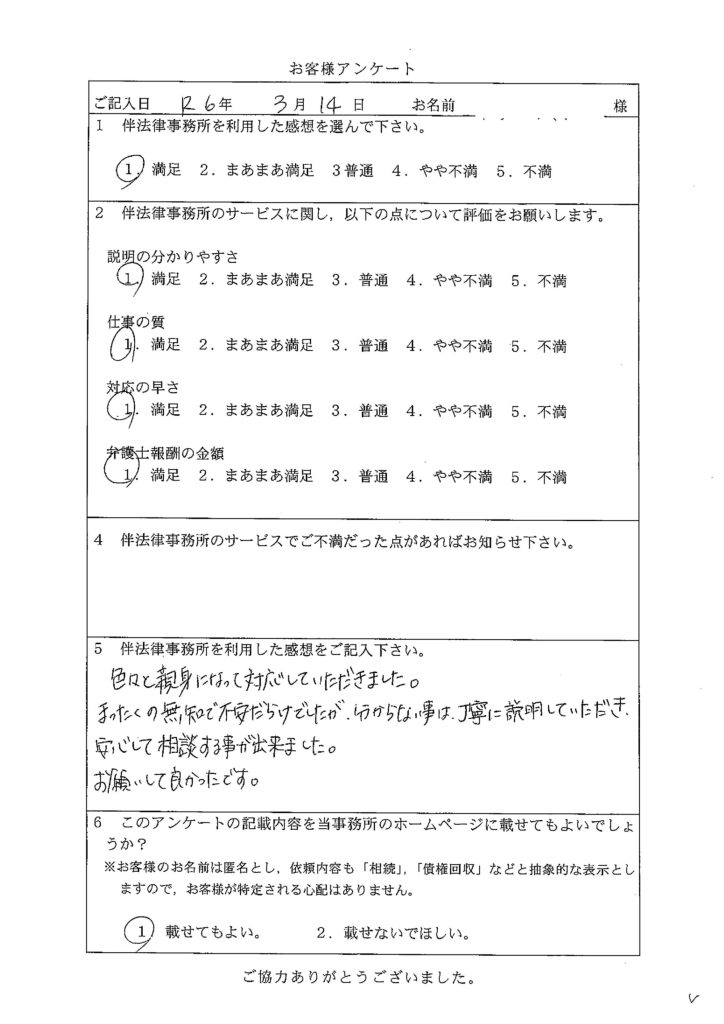 お客様アンケート
ご記入日 R6年 3月14日 お名前 様
1 伴法律事務所を利用した感想を選んで下さい。
1. 満足 2. まあまあ満足 3普通 4. やや不満 5. 不満
2 伴法律事務所のサービスに関し，以下の点について評価をお願いします。
説明の分かりやすさ
1. 満足 2. まあまあ満足 3. 普通 4. やや不満 5. 不満
仕事の質
1. 満足 2. まあまあ満足 3. 普通 4. やや不満 5. 不満
対応の早さ
1. 満足 2. まあまあ満足 3. 普通 4. やや不満 5. 不満
弁護士報酬の金額
1. 満足 2. まあまあ満足 3. 普通 4. やや不満 5. 不満
4 伴法律事務所のサービスでご不満だった点があればお知らせ下さい。
5 伴法律事務所を利用した感想をご記入下さい。
色々と親身になって対応していただきました。
まったくの無知で不安だらけでしたが、分からない事は、丁寧に説明していただき、
安心して相談する事が出来ました。
お願いして良かったです。
6 このアンケートの記載内容を当事務所のホームページに載せてもよいでしょ
うか？
※お客様のお名前は匿名とし，依頼内容も「相続」，「債権回収」などと抽象的な表示とし
ますので，お客様が特定される心配はありません。
1 載せてもよい。 2. 載せないでほしい。
ご協力ありがとうございました。